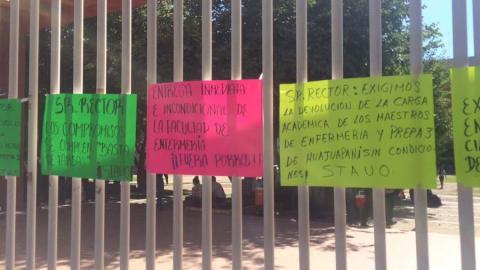 SR. RECTOR
LOS COMPROMISOS
SE CUMPLEN "BASTA
DE TRANZA"
ENTREGA INMEDIATA
E INCONDICIONAL DE
LA FACULTAD DE
ENFERMERIA
¡¡FUERA PORROS!!
SR. RECTOR: EXIGIMOS
LA DEVOLUCION DE LA CARGA
ACADEMICA DE LOS MAESTROS
DE ENFERMERIA Y PREPA 3
DE HUAJUAPAN ¡SIN CONDICIO
NES!
STAUO